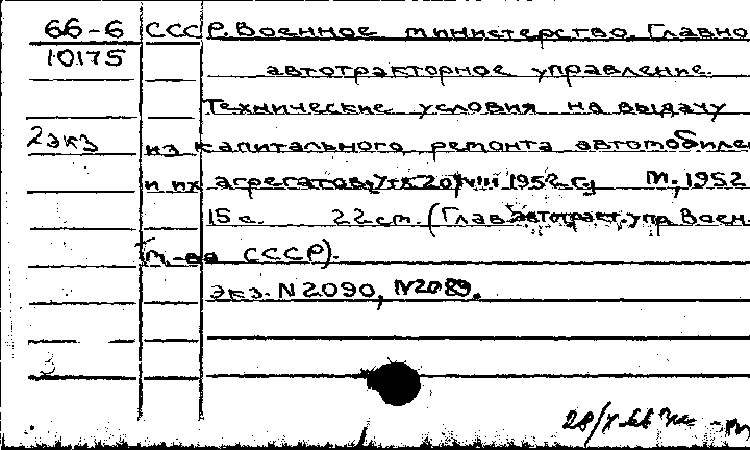 66-6 СССР. Военное министерство. Главно
10175 автотракторное управление.
Технические условия на выдачу
2 экз из капитального ремонта автомобиле
и их агрегатов. Утв. 20/VIII 1952 г. М., 1952
15 с. 22 см. (Глав. автотракт. упр. Воен.
м-ва СССР).
Экз. N 2090, N 2089.
3